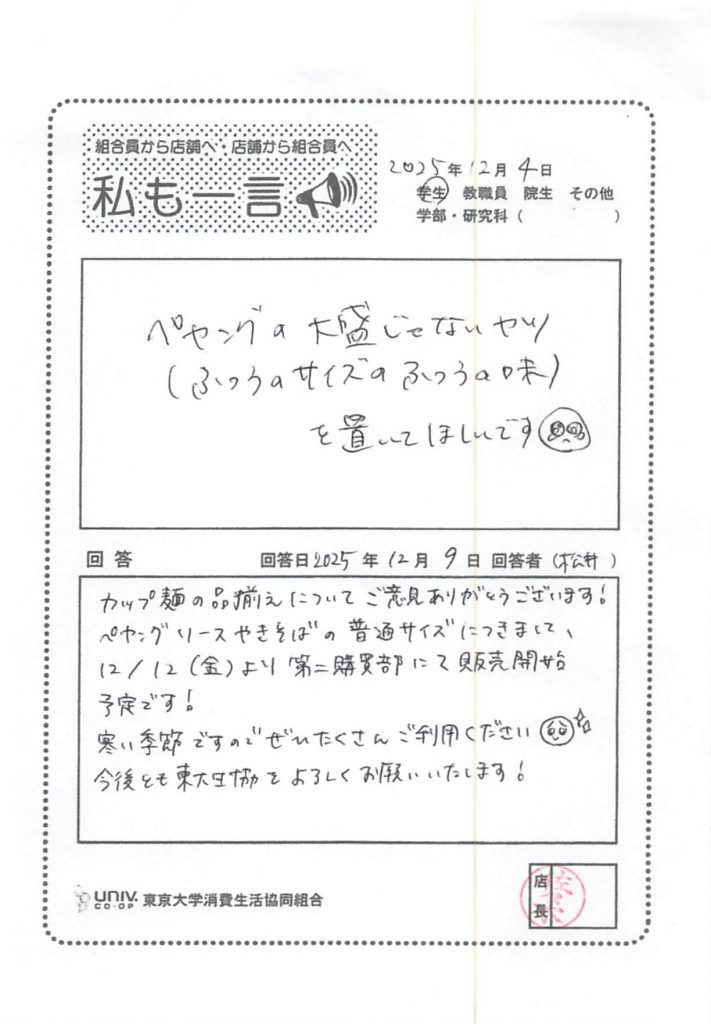 組合員から店舗へ・店舗から組合員へ
私も一言
2025年12月4日
学生 教職員 院生 その他
学部・研究科（　　　）
ペヤングの大盛じゃないヤツ
(ふつうのサイズのふつうの味)
を置いてほしいです
回答 回答日2025年12月9日 回答者（松井）
カップ麺の品揃えについてご意見ありがとうございます!
ペヤングソースやきそばの普通サイズにつきまして、
12/12(金)より第二購買部にて販売開始
予定です!
寒い季節ですのでぜひたくさんご利用ください
今後とも東大生協をよろしくお願いいたします!
UNIV.
CO-OP 東京大学消費生活協同組合
店長